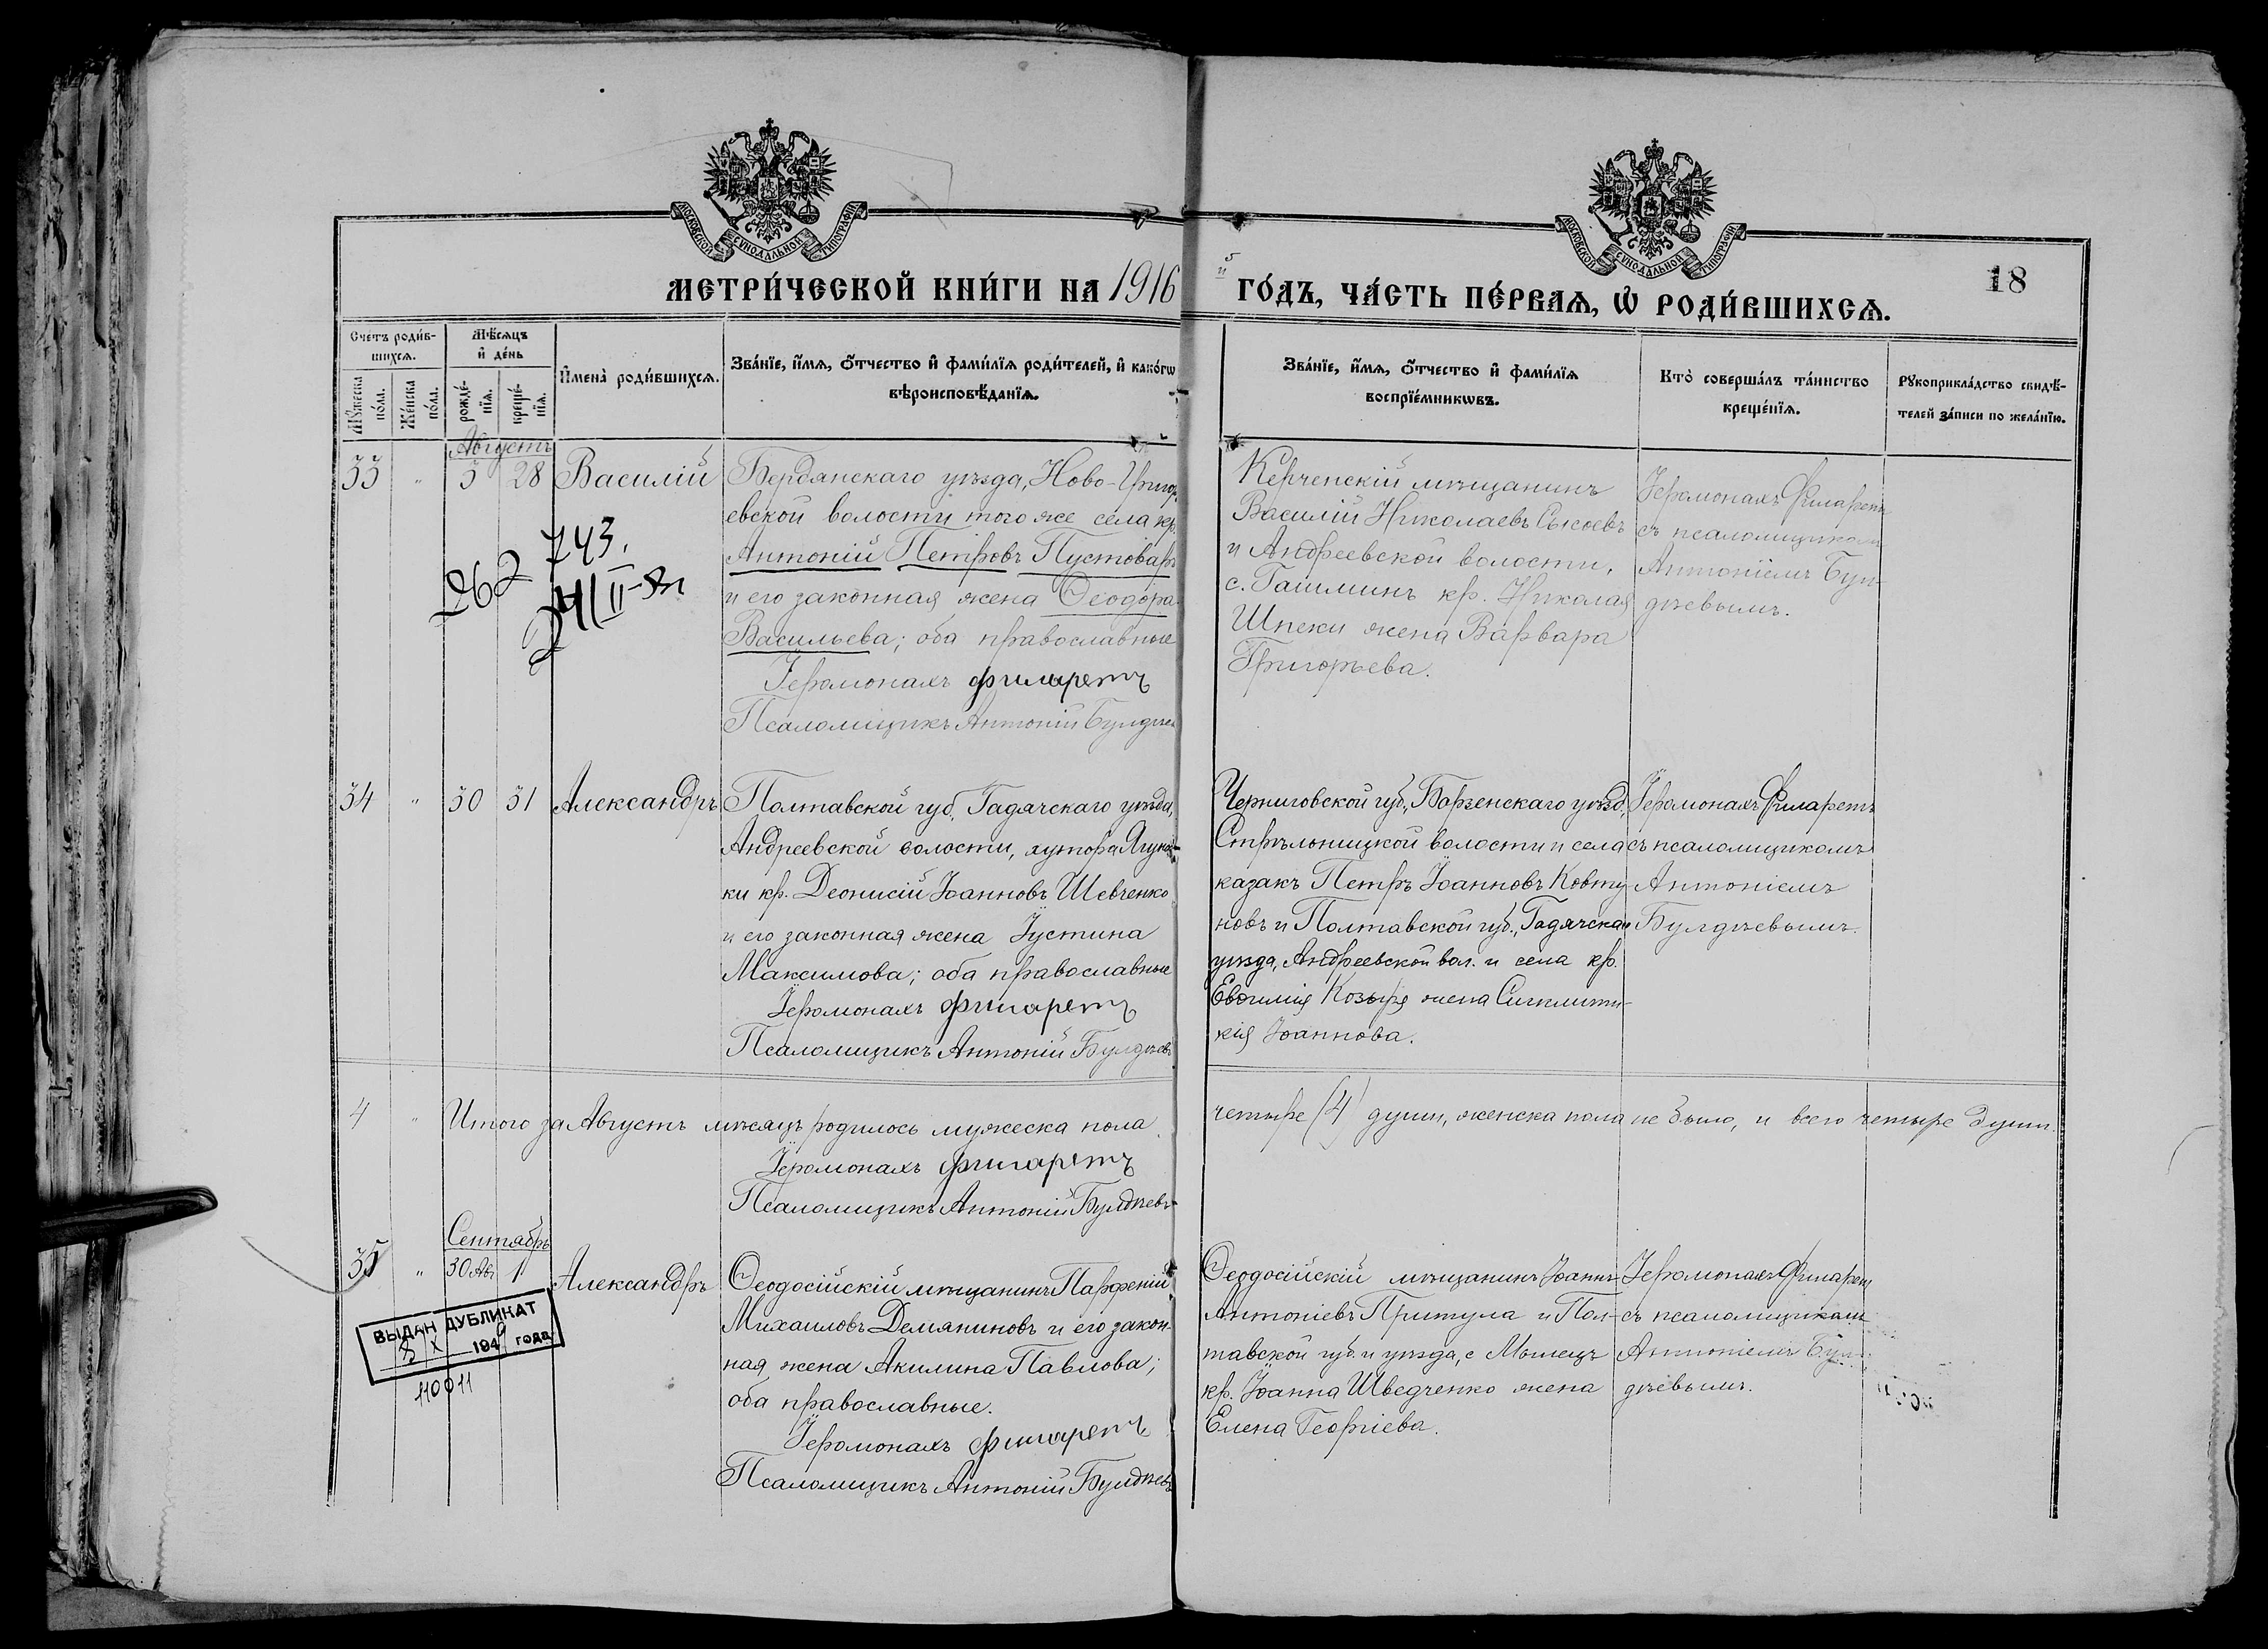 МОСКОВСКОЙ СУНОДАЛЬНОЙ ТИПОГРАФІИ
МОСКОВСКОЙ СУНОДАЛЬНОЙ ТИПОГРАФІИ
МЕТРИ́ЧЕСКОЙ КНИ́ГИ НА 1916
й ГО́ДЪ, ЧА́СТЬ ПЕ́РВАѦ, Ѡ҆ РОДИ́ВШИХСѦ.
18
Счетъ роди́в-
шихсѧ.
Мѣ́сѧцъ
и҆ де́нь
Мꙋжеска
по́ла.
Же́нска
по́ла.
рожде́-
нїѧ.
креще́-
нїѧ.
И҆мена̀ роди́вшихсѧ.
Зва́нїе, и҆́мѧ, ѻ҆́тчество и҆ фами́лїѧ роди́телей, и҆ како́гѡ
вѣроисповѣ́данїѧ.
Зва́нїе, и҆́мѧ, ѻ҆́тчество и҆ фами́лїѧ
воспрїе́мникѡвъ.
Кто̀ соверша́лъ та́инство
креще́нїѧ.
Рꙋкоприкла́дство свидѣ́-
телей за́писи по жела́нїю.
Августъ
33 " 3 28 Василій
Бердянскаго уѣзда, Ново-Григорь
евской волости того же села кр.
Антоній Петровъ Пустоваръ
и его законная жена Ѳеодора
Васильева; оба православные
Іеромонахъ Филаретъ
Псаломщикъ Антоній Булдѣев
262
743.
Керченскій мѣщанинъ
Василій Николаевъ Сысоевъ
и Андреевской волости,
с. кр. Николая
Шпеки жена Варвара
Григорьева.
Іеромонахъ Филаретъ
съ псаломщикомъ
Антоніемъ Бул-
дѣевымъ.
34 " 30 31 Александръ
Полтавской губ. Гадячскаго уѣзда,
Андреевской волости, хутора
ки кр. Деонисій Іоанновъ Шевченко
и его законная жена Іустина
Максимова; оба православные
Іеромонахъ Филаретъ
Псаломщикъ Антоній Булдѣевъ
Черниговской губ., Борзенскаго уѣзд,
Стрѣльницкой волости и села
казакъ Петръ Іоанновъ Ковту
новъ и Полтавской губ., Гадячскаго
уѣзда, Андреевской вол. и села кр.
Евѳимія Козыря жена Синклити-
кія Іоаннова.
Іеромонахъ Филаретъ
съ псаломщикомъ
Антоніемъ
Булдѣевымъ.
4 " Итого за Августъ мѣсяцъ родилось мужеска пола
четыре (4) души, женска пола не было, и всего четыре души.
Іеромонахъ Филаретъ
Псаломщикъ Антоній Булдѣевъ
Сентябрь
35 " 30 Авг 1 Александръ
Ѳеодосійскій мѣщанинъ Парѳеній
Михаиловъ Демяниновъ и его закон-
ная жена Акилина Павлова;
оба православные.
Іеромонахъ Филаретъ
Псаломщикъ Антоній Булдѣевъ
Ѳеодосійскій мѣщанинъ Іоаннъ
Антоніевъ Притула и Пол-
тавской губ. и уѣзда, с
кр. Іоанна Шведченко жена
Елена Георгіева.
Іеромонахъ Филарет
съ псаломщикомъ
Антоніемъ Бул-
дѣевымъ.
ВЫДАН ДУБЛИКАТ
X 1949 года
110011